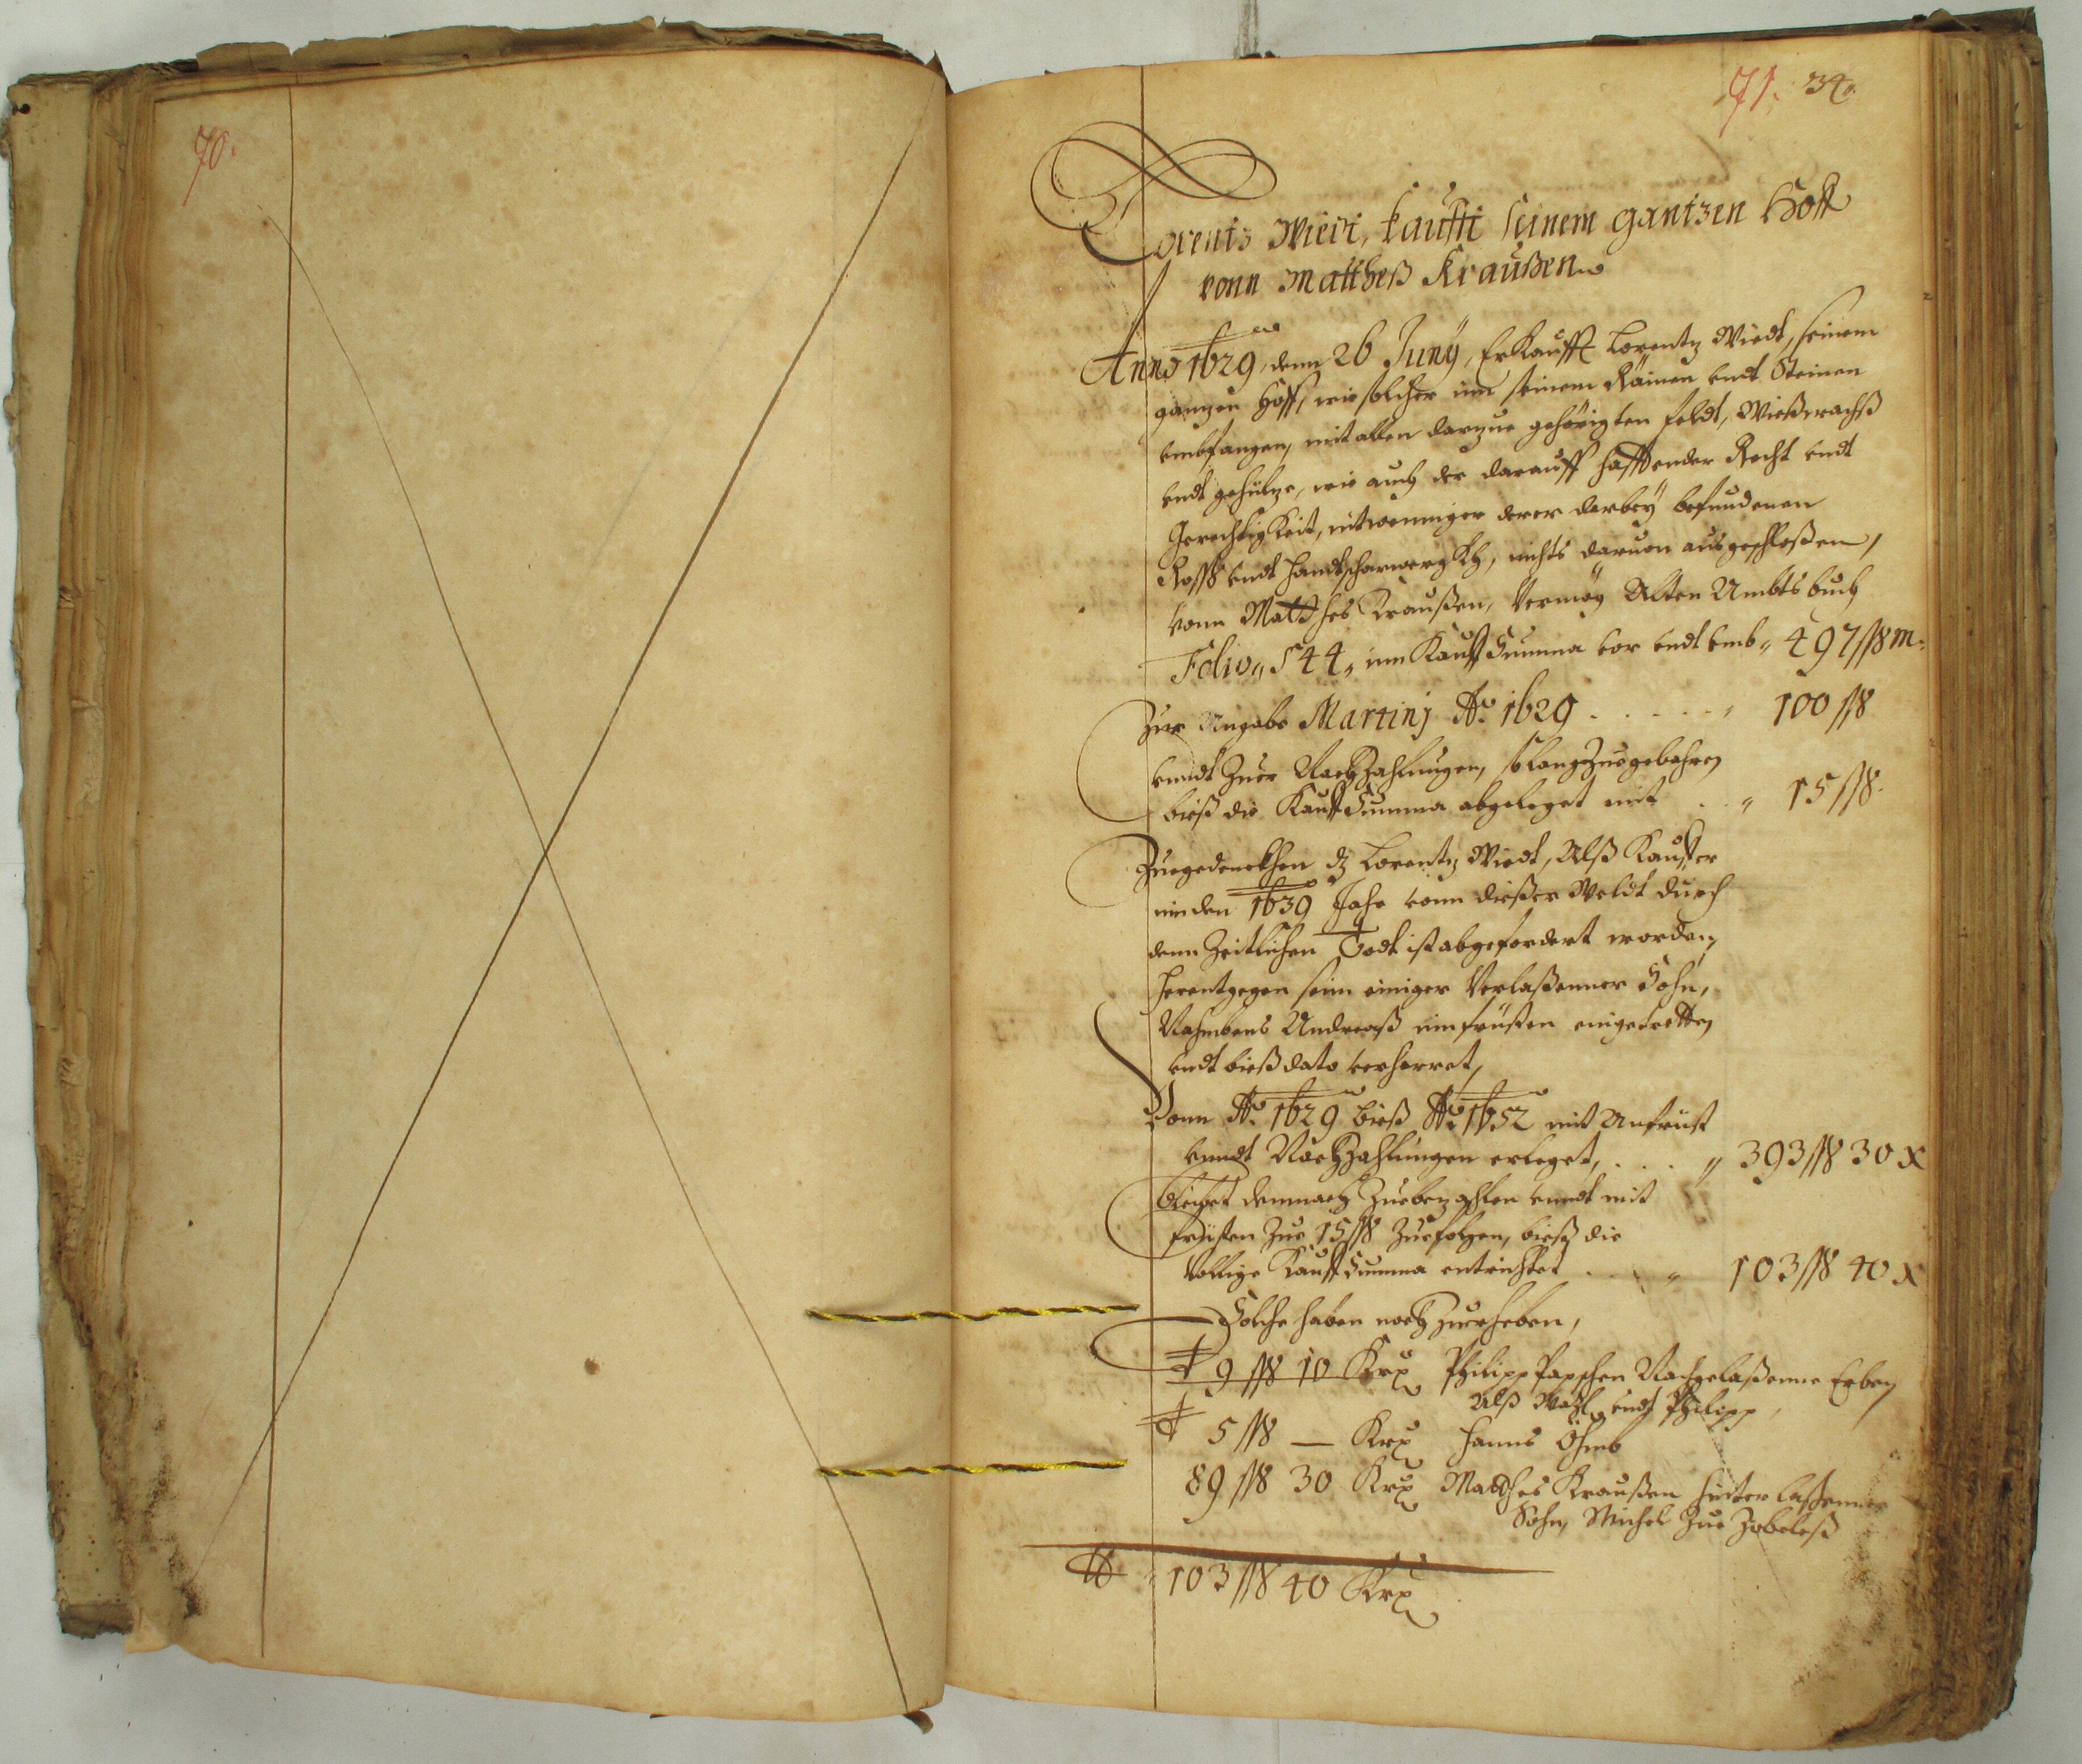 70.
71. 34.
Lorentz Wiedt, kaufft seinem gantzen Hoff
vonn Mattheß Kraußen
Anno 1629, denn 26 Juny, Erkaufft Lorentz Wiedt, seinem
ganzen Hoff, wie solcher inn seinem Räinen undt Steinen
umbfangen, mit allen darzue gehörigten feldt, Wießwachß
undt gehültze, wie auch der darauff hafftender Recht undt
Gerechtigkeit, nit weniger derer darbeÿ befundenen
Rosß undt handtscharwergkh, nichts daruon ausgeschloßen,
vonn Matthes Kraußen, Vermög Alten Ambtsbuch
Folio 544, inn Kauff Summa vor undt umb 497 ßß m.
Zur Angabe Martinj Ao. 1629 . . . . . 100 ßß
unndt Zuer Nachzahlungen, solang Zuegebahren
bieß die Kauff Summa abgeleget mit . . 15 ßß.
Zuegedenckhen dz Lorentz Wiedt, Alß Kauffer
inn den 1639 Jahr vonn dießer Weldt durch
denn Zeitlichen Todt ist abgefordert worden,
herentgegen sein einiger Verlaßenner Sohn,
Nahmbens Andreaß inn früsten eingetretten
undt bieß dato verharret,
Vonn Ao. 1629 bieß Ao. 1652 mit Anfrüst
unndt Nachzahlungen erleget, . . . 393 ßß 30 x
bleibet demnach Zuebezahlen unndt mit
früsten Zue 15 ßß Zuefolgen, bieß die
Vollige Kauff Summa entrichtet . . . 103 ßß 40 x
Solche haben noch zuerheben,
9 ßß 10 Krx Philipp Papschen Nachgelaßenne Erben
Alß Matzl undt Philipp,
5 ßß — Krx Hanns Öhmb
89 ßß 30 Krx Matthes Kraußen hinterlaßenner
Sohn, Michel Zue Zobeleß
103 ßß 40 Krx